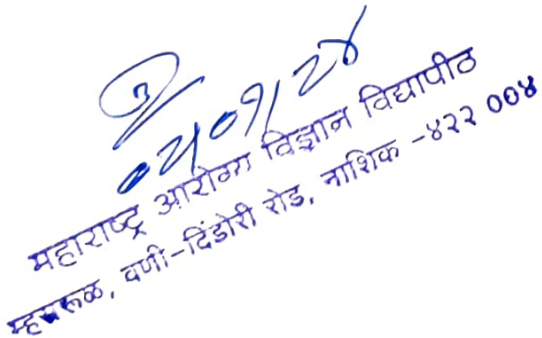 ०५/०१/२४
महाराष्ट्र आरोग्य विज्ञान विद्यापीठ
म्हसरूळ, वणी-दिंडोरी रोड, नाशिक -४२२ ००४